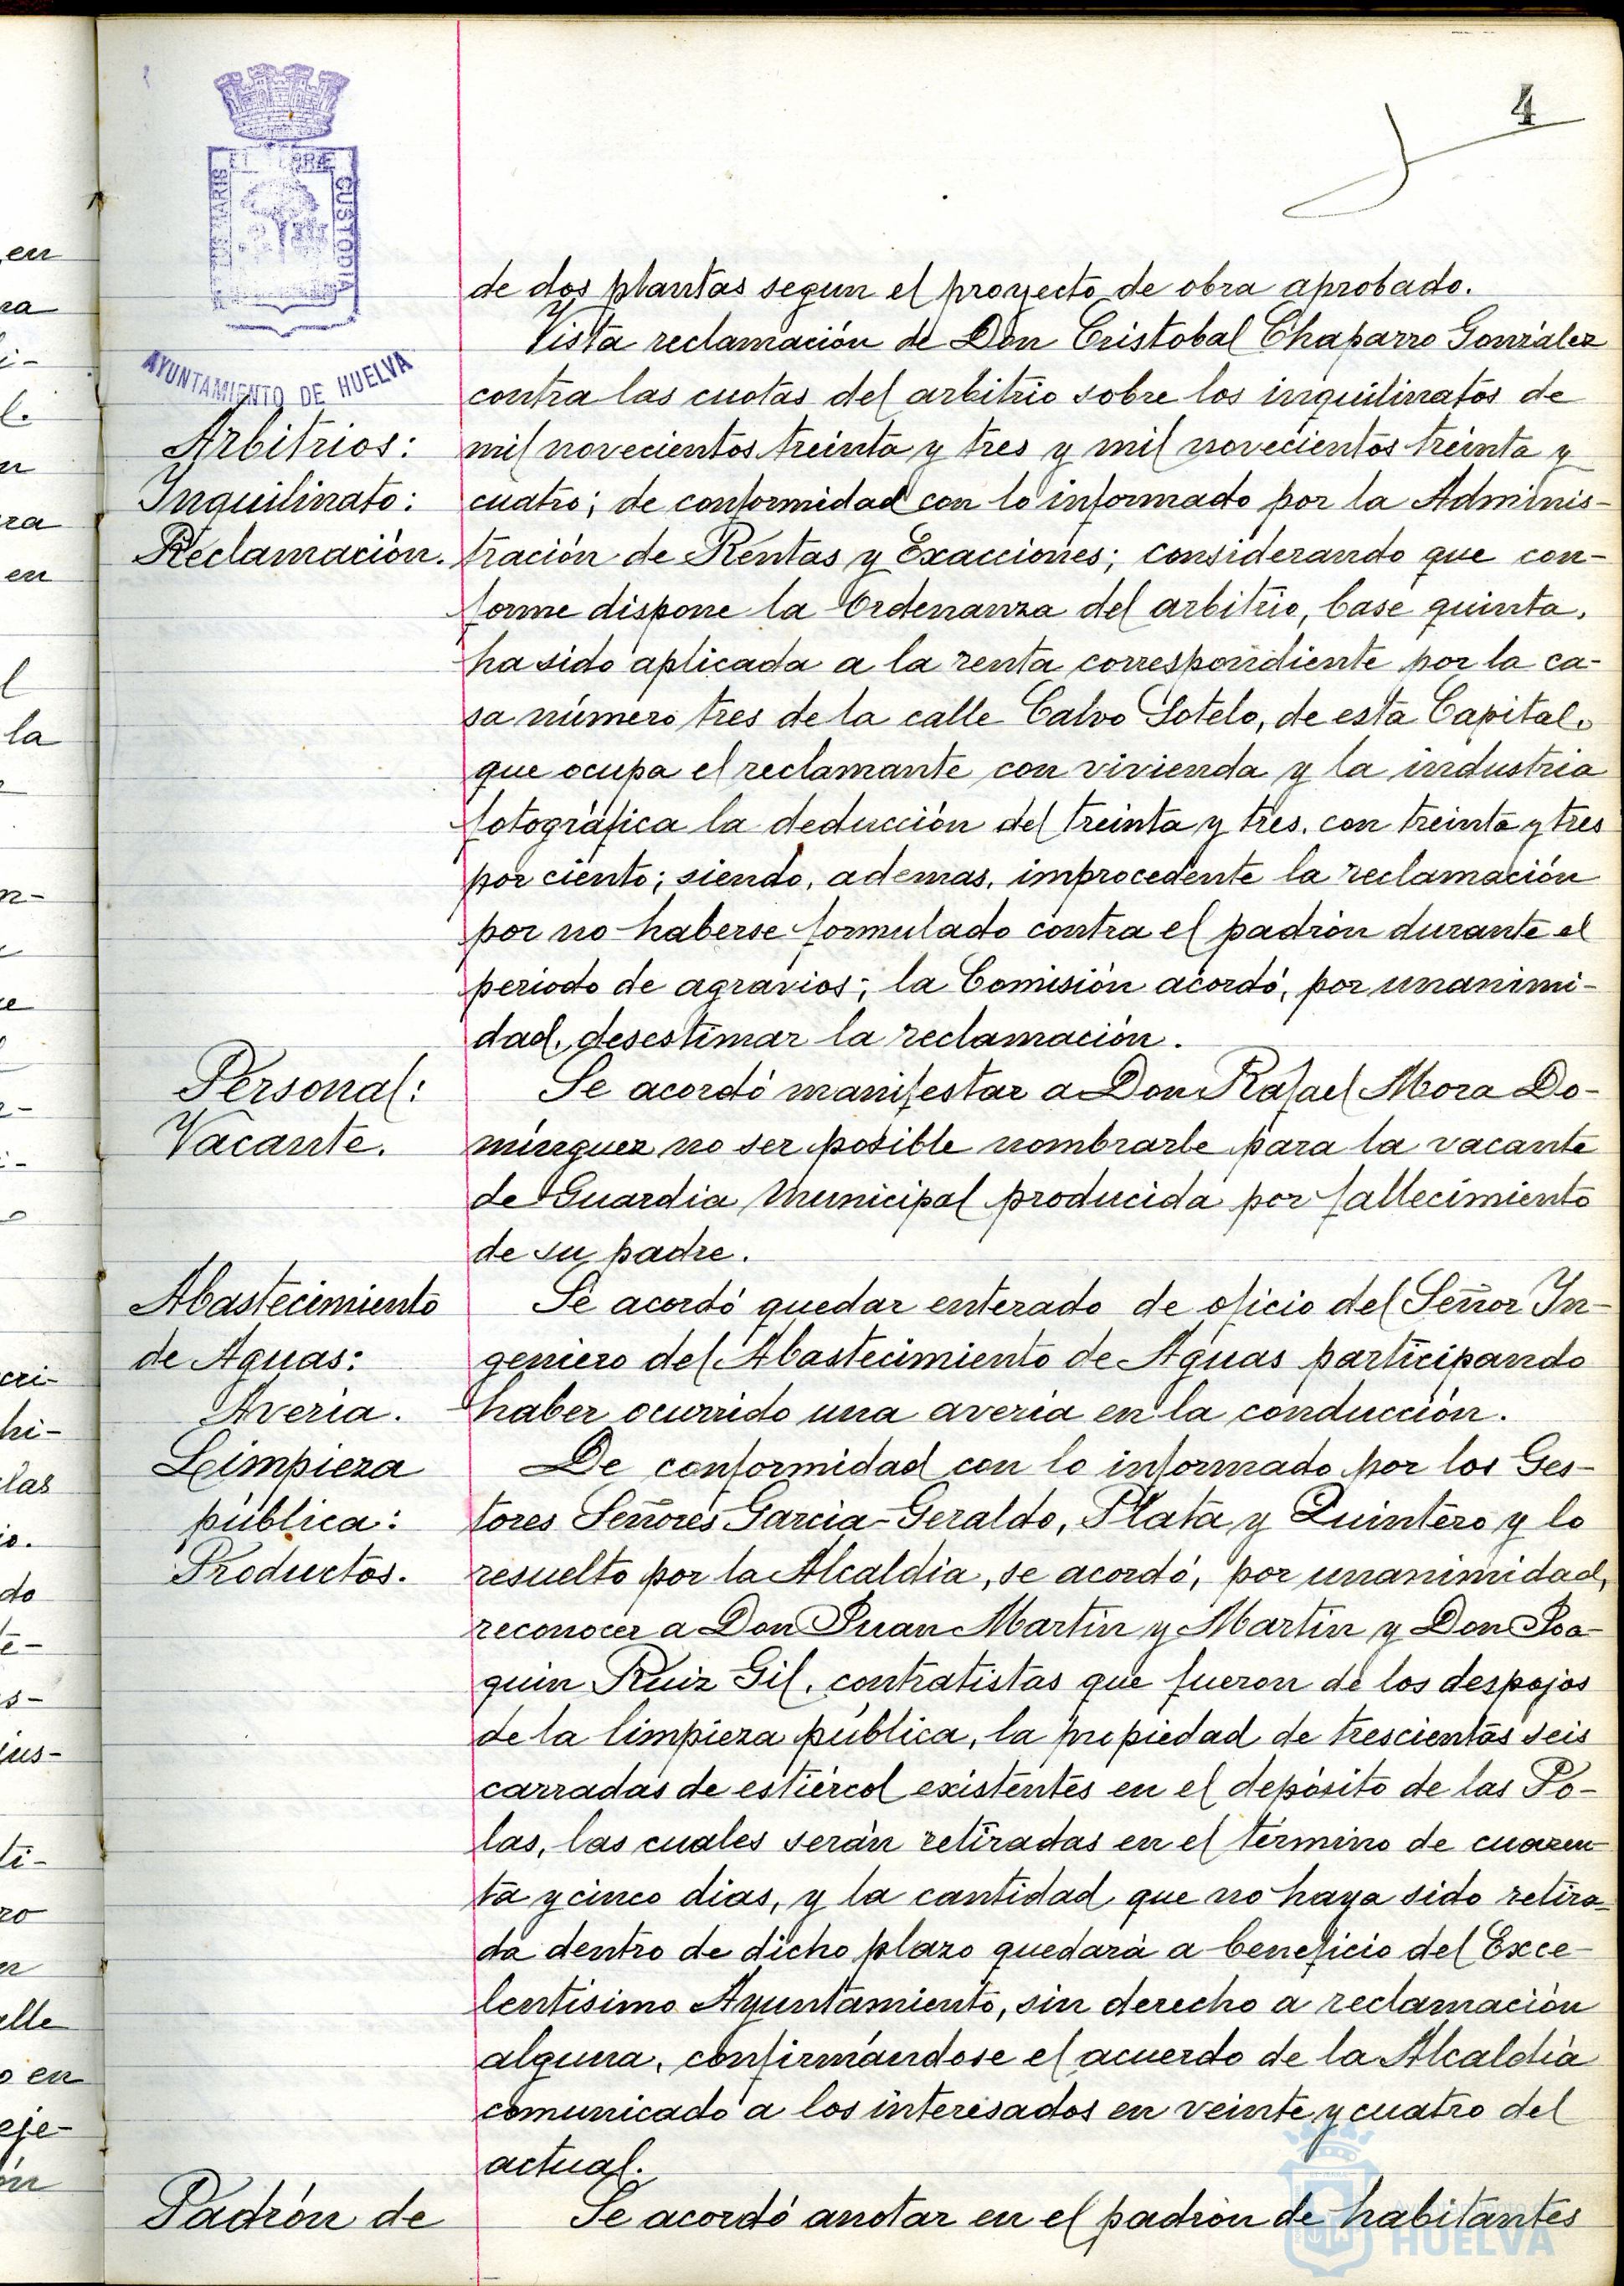 4
PORTUS MARIS ET TERRÆ CUSTODIA
AYUNTAMIENTO DE HUELVA
de dos plantas segun el proyecto de obra aprobado.
Vista reclamación de Don Cristobal Chaparro González
contra las cuotas del arbitrio sobre los inquilinatos de
Arbitrios: mil novecientos treinta y tres y mil novecientos treinta y
Inquilinato: cuatro; de conformidad con lo informado por la Adminis-
Reclamación. tración de Rentas y Exacciones; considerando que con-
forme dispone la Ordenanza del arbitrio, base quinta,
ha sido aplicada a la renta correspondiente por la ca-
sa número tres de la calle Calvo Sotelo, de esta Capital,
que ocupa el reclamante con vivienda y la industria
fotográfica la deducción del treinta y tres, con treinta y tres
por ciento; siendo, ademas, improcedente la reclamación
por no haberse formulado contra el padrón durante el
periodo de agravios; la Comisión acordó, por unanimi-
dad, desestimar la reclamación.
Personal: Se acordó manifestar a Don Rafael Mora Do-
Vacante. minguez no ser posible nombrarle para la vacante
de Guardia Municipal producida por fallecimiento
de su padre.
Abastecimiento Se acordó quedar enterado de oficio del Señor In-
de Aguas: geniero del Abastecimiento de Aguas participando
Averia. haber ocurrido una averia en la conducción.
Limpieza De conformidad con lo informado por los Ges-
pública: tores Señores Garcia-Geraldo, Plata y Quintero y lo
Productos. resuelto por la Alcaldia, se acordó, por unanimidad,
reconocer a Don Juan Martin y Martin y Don Joa-
quin Ruiz Gil, contratistas que fueron de los despojos
de la limpieza pública, la propiedad de trescientas seis
carradas de estiércol existentes en el depósito de las Po-
las, las cuales serán retiradas en el término de cuaren-
ta y cinco dias, y la cantidad que no haya sido retira-
da dentro de dicho plazo quedará a beneficio del Exce-
lentisimo Ayuntamiento, sin derecho a reclamación
alguna, confirmándose el acuerdo de la Alcaldia
comunicado a los interesados en veinte y cuatro del
actual.
Padrón de Se acordó anotar en el padrón de habitantes
Ayuntamiento de
HUELVA